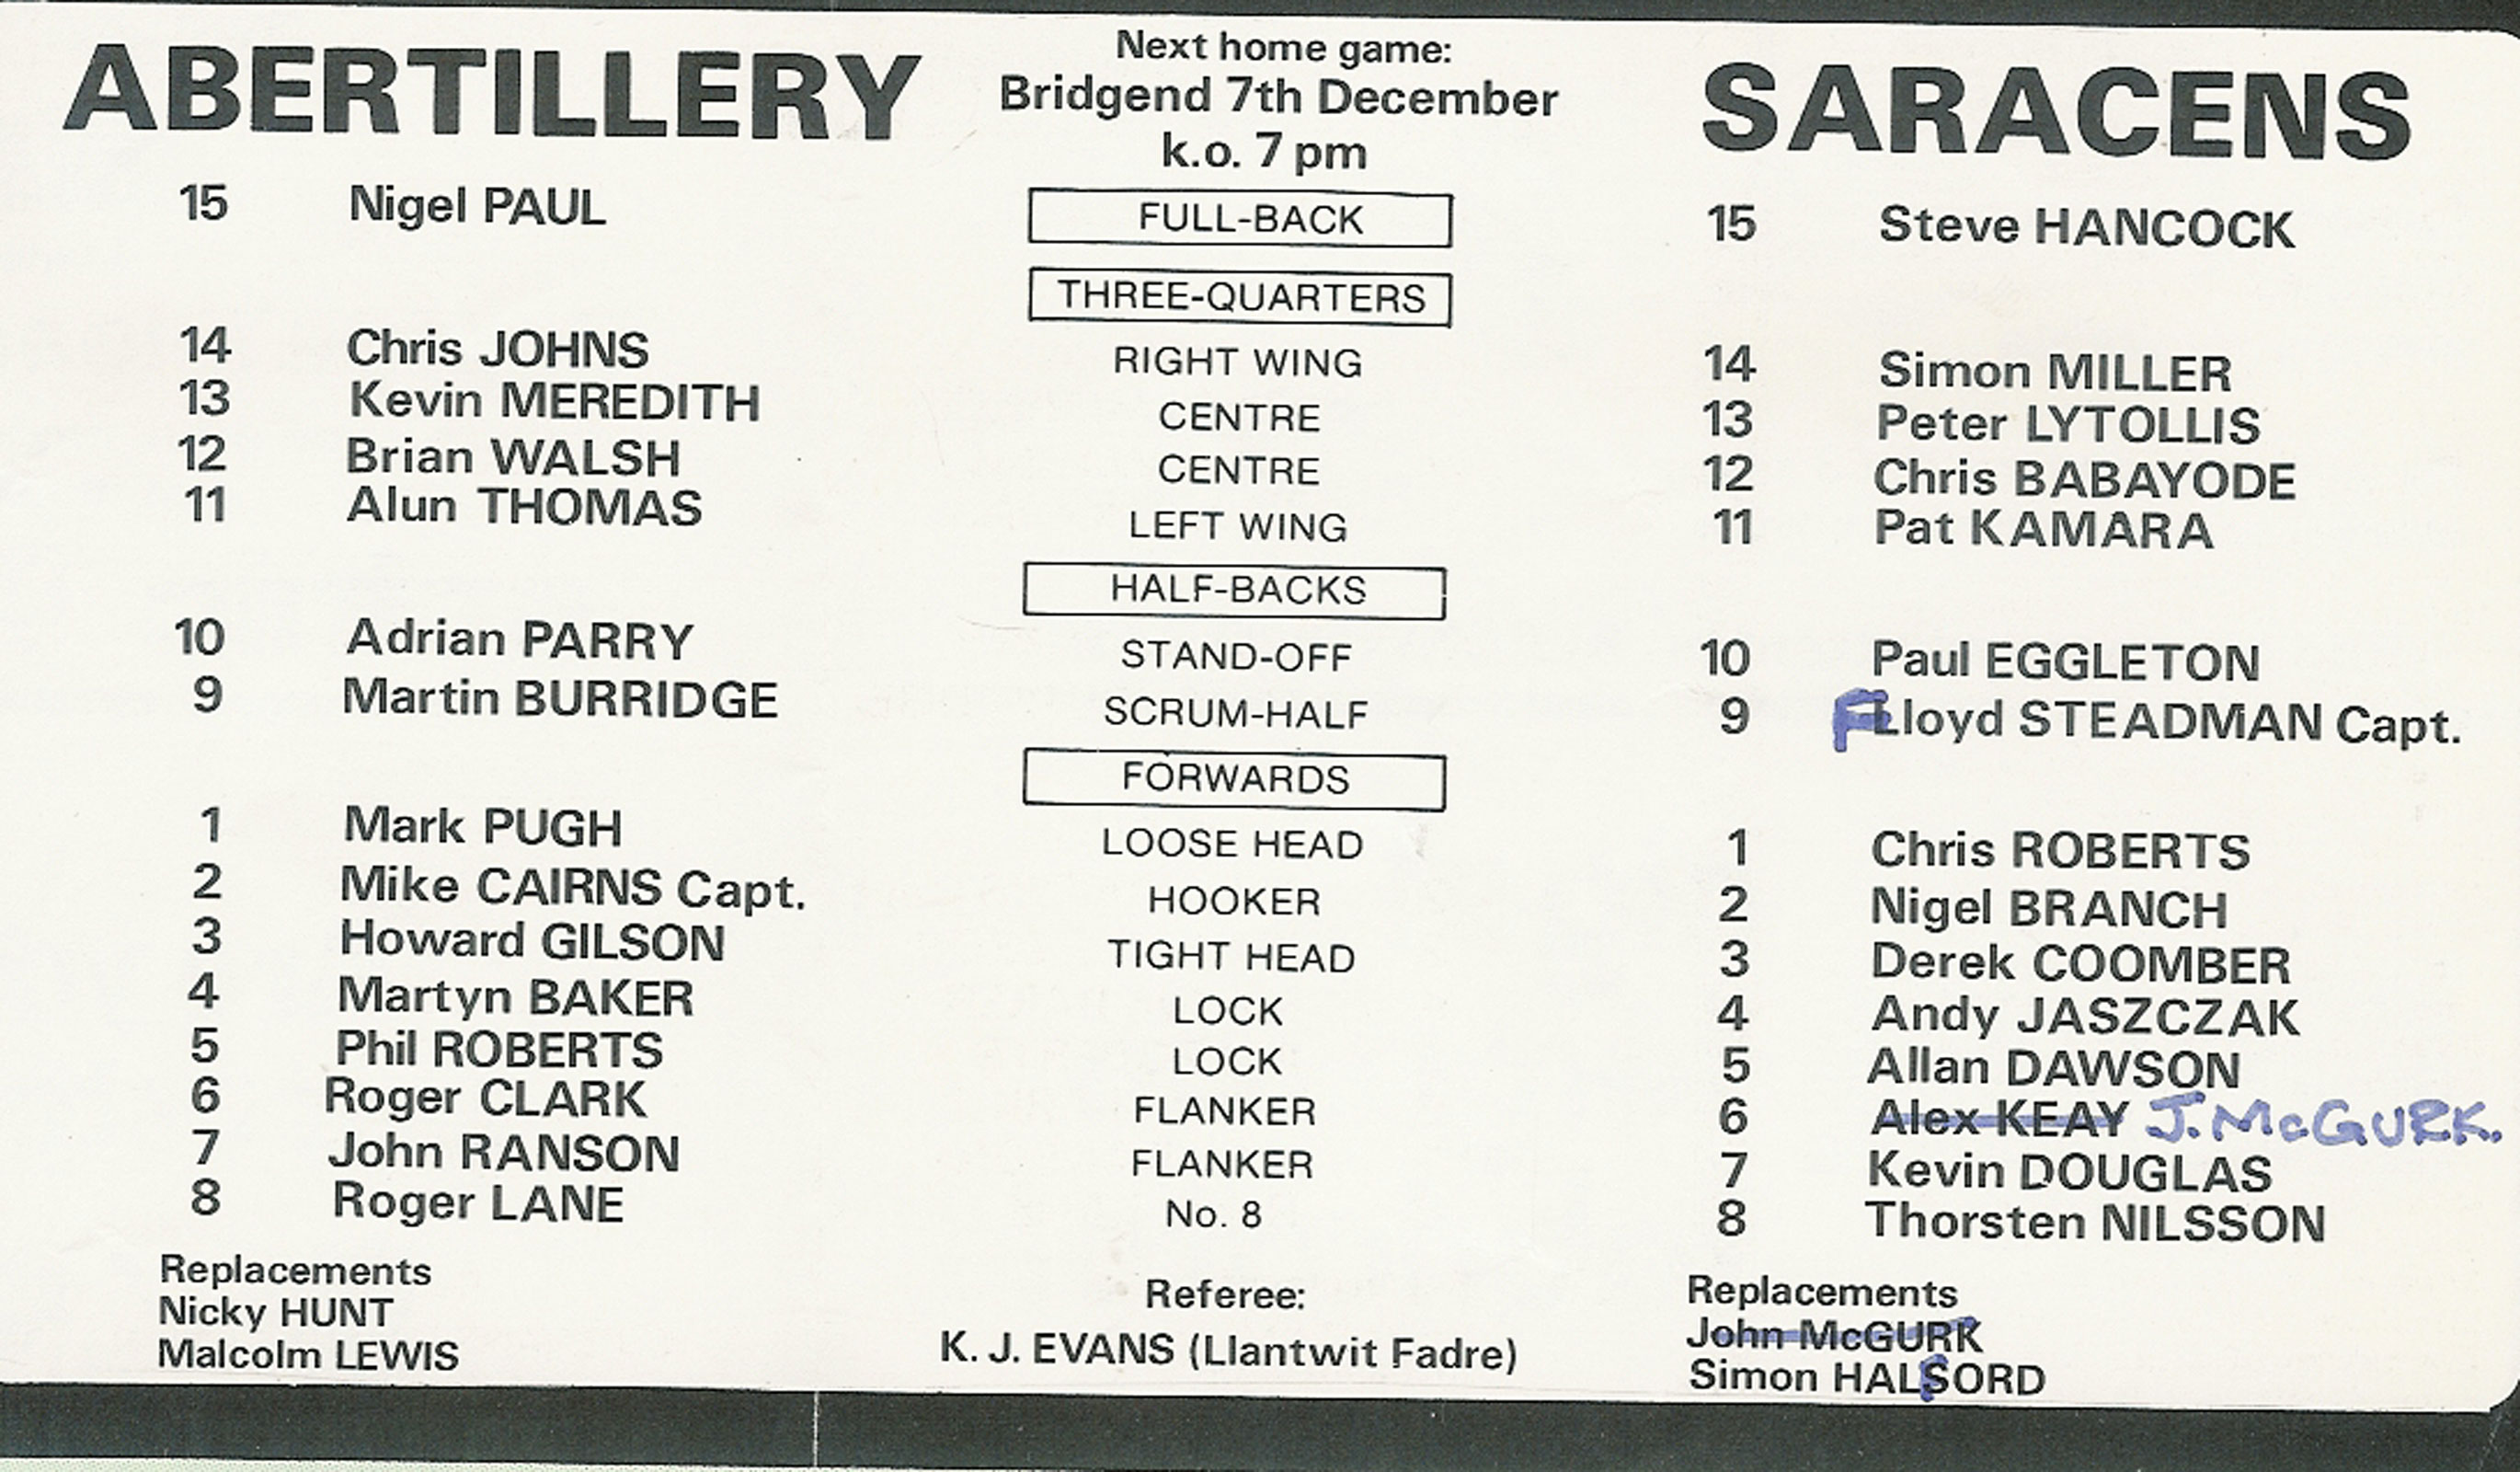 ABERTILLERY
15 Nigel PAUL
14 Chris JOHNS
13 Kevin MEREDITH
12 Brian WALSH
11 Alun THOMAS
10 Adrian PARRY
9 Martin BURRIDGE
1 Mark PUGH
2 Mike CAIRNS Capt.
3 Howard GILSON
4 Martyn BAKER
5 Phil ROBERTS
6 Roger CLARK
7 John RANSON
8 Roger LANE
Replacements
Nicky HUNT
Malcolm LEWIS
Next home game:
Bridgend 7th December
k.o. 7 pm
FULL-BACK
THREE-QUARTERS
RIGHT WING
CENTRE
CENTRE
LEFT WING
HALF-BACKS
STAND-OFF
SCRUM-HALF
FORWARDS
LOOSE HEAD
HOOKER
TIGHT HEAD
LOCK
LOCK
FLANKER
FLANKER
No. 8
Referee:
K. J. EVANS (Llantwit Fadre)
SARACENS
15 Steve HANCOCK
14 Simon MILLER
13 Peter LYTOLLIS
12 Chris BABAYODE
11 Pat KAMARA
10 Paul EGGLETON
9 FLloyd STEADMAN Capt.
1 Chris ROBERTS
2 Nigel BRANCH
3 Derek COOMBER
4 Andy JASZCZAK
5 Allan DAWSON
6 Alex KEAY J. McGURK.
7 Kevin DOUGLAS
8 Thorsten NILSSON
Replacements
John McGURK
Simon HALSORD